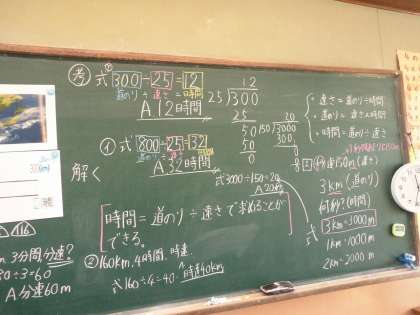 考 式 ア 300÷25=12
道のり÷速さ=時間
A 12時間
12
25)300
25
50
50
0
イ 式 800÷25=32
道のり÷速さ
A 32時間
解く
20
150)3000
300
0
式3000÷150=20
A 20秒
時間=道のり÷速さで求めることが
できる。
②160km、4時間、時速
式160÷4=40 A 時速40km
m、3分間、分速?
80÷3=60
A 分速60m
・速さ=道のり÷時間
・道のり=速さ×時間
・時間=道のり÷速さ
秒速150m(速さ)
3km(道のり)
何秒?(時間)
3km=3000m
1km=1000m
2km=2000m
式